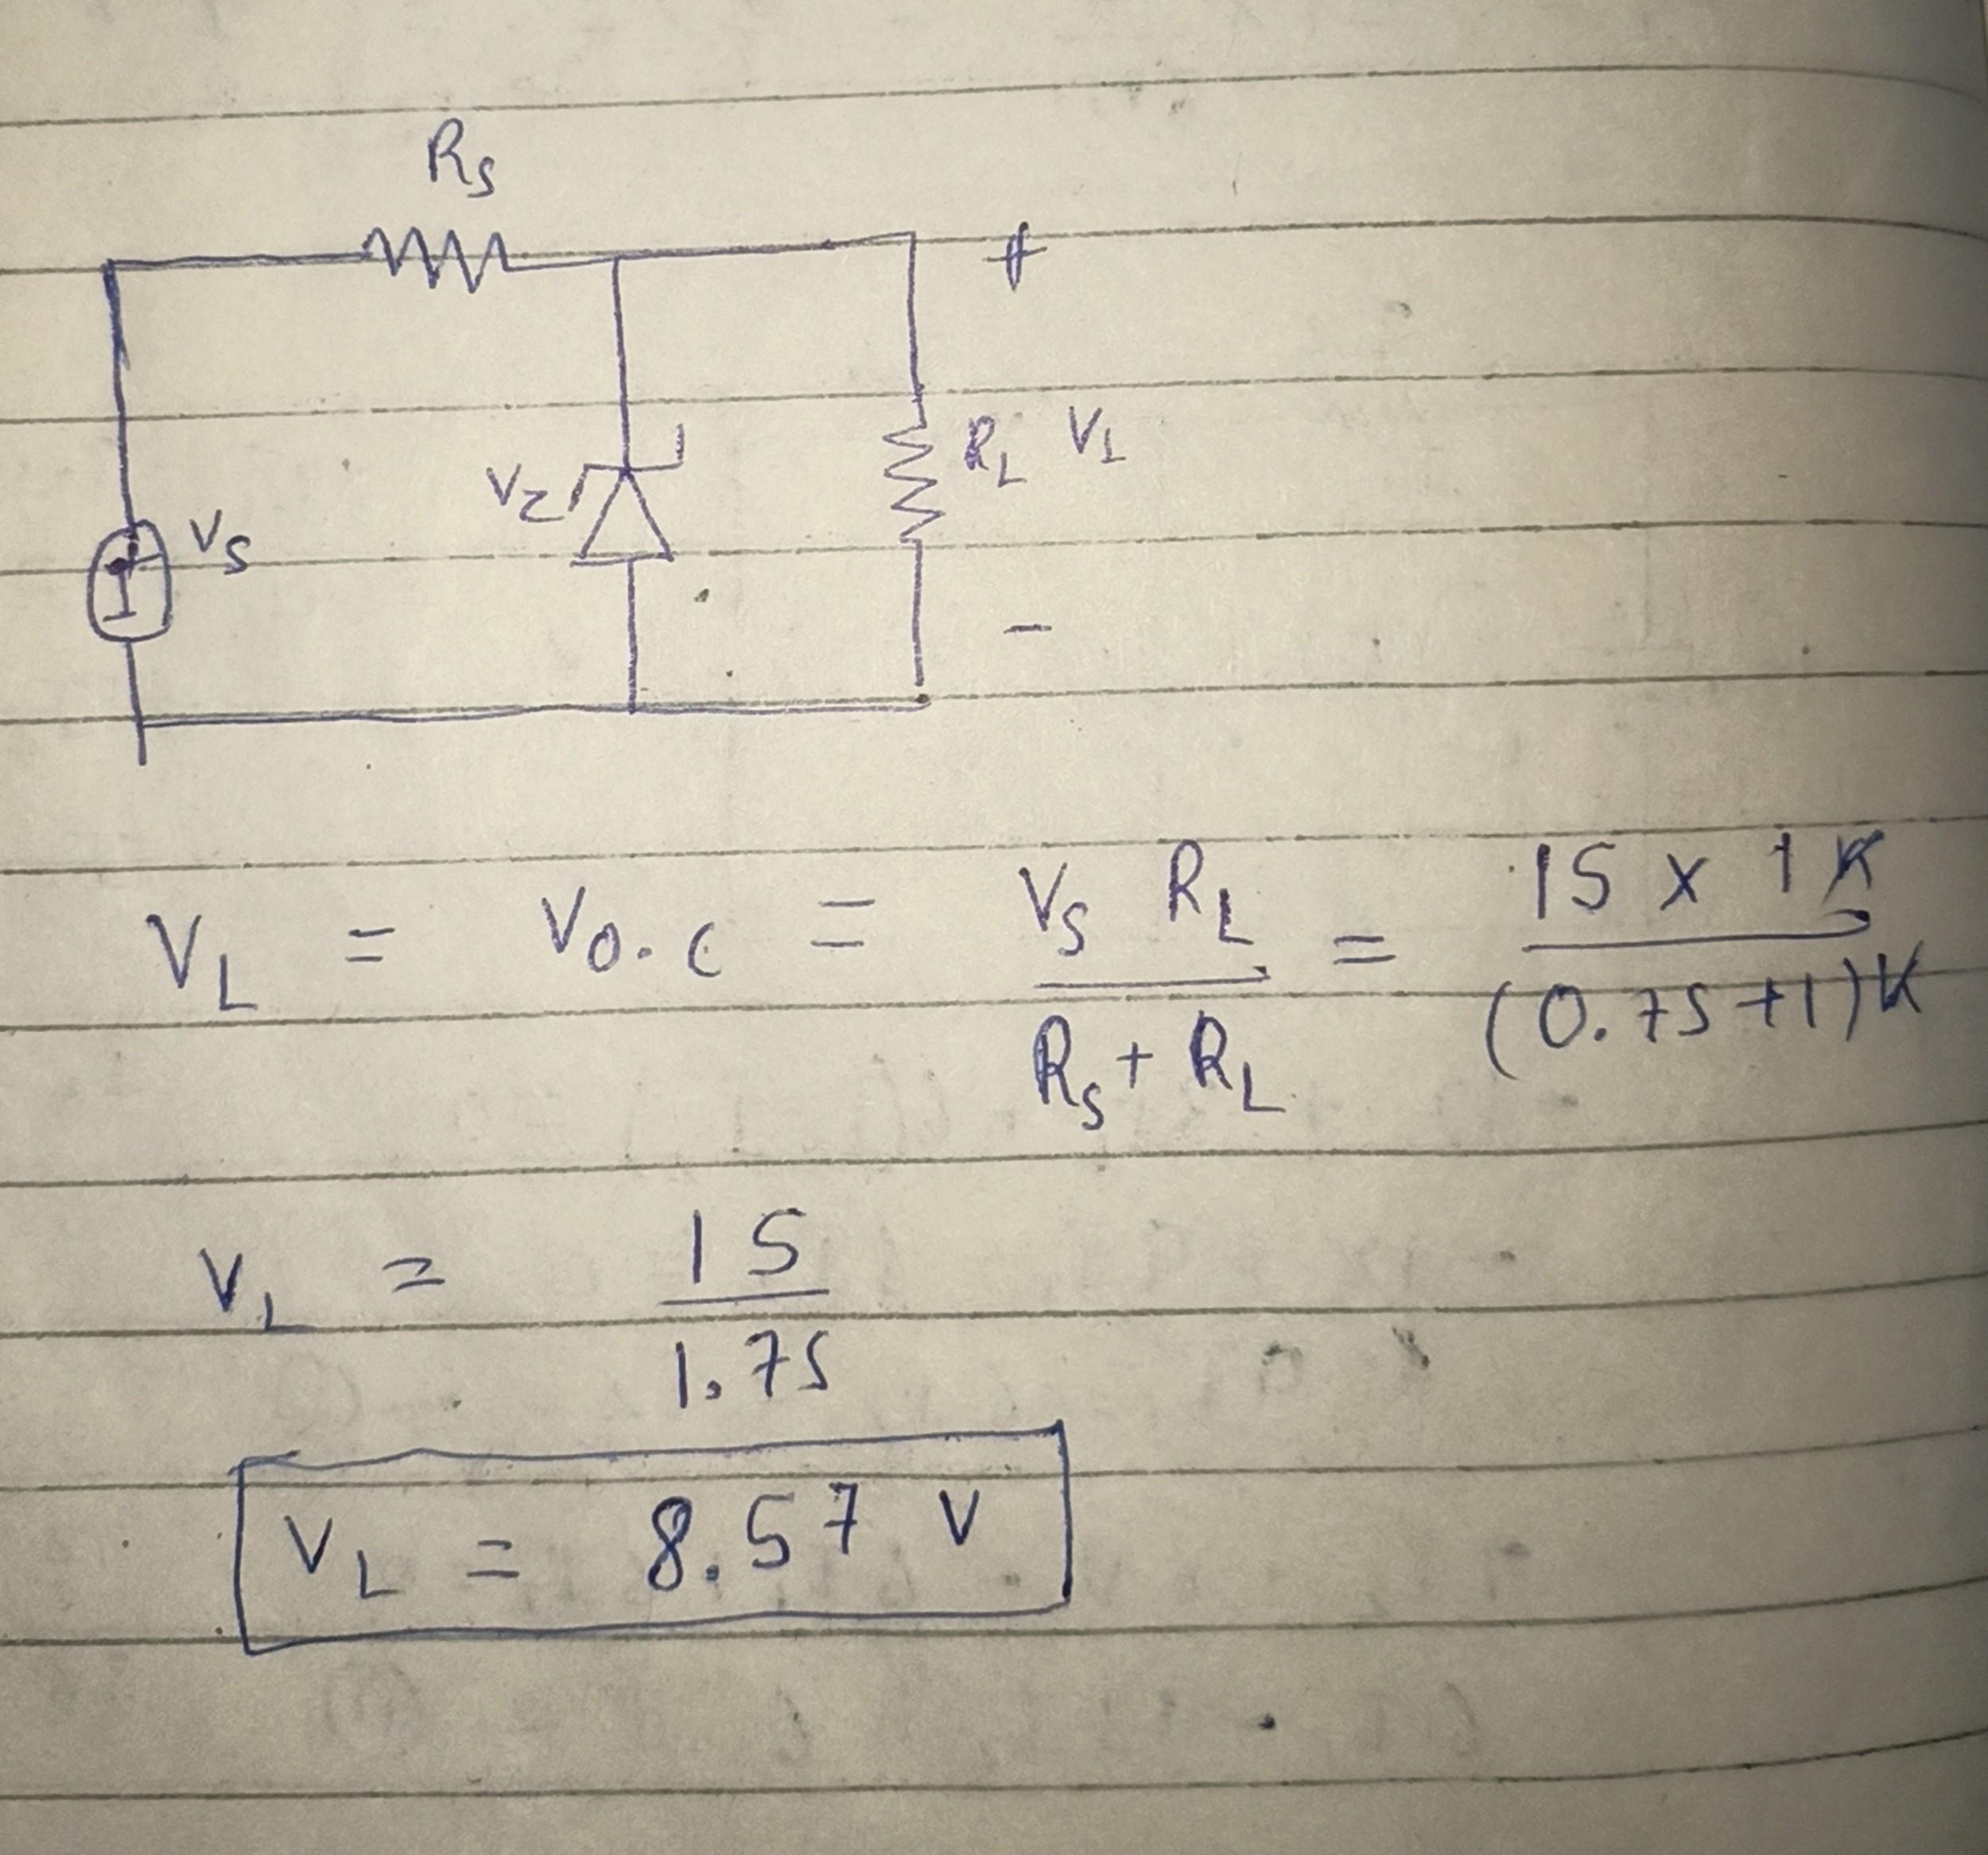 Rs
+
Vz
RL VL
Vs
−
VL = Vo.c = Vs RL / Rs + RL = 15 x 1K / (0.75+1)K
VL = 15 / 1.75
VL = 8.57 V